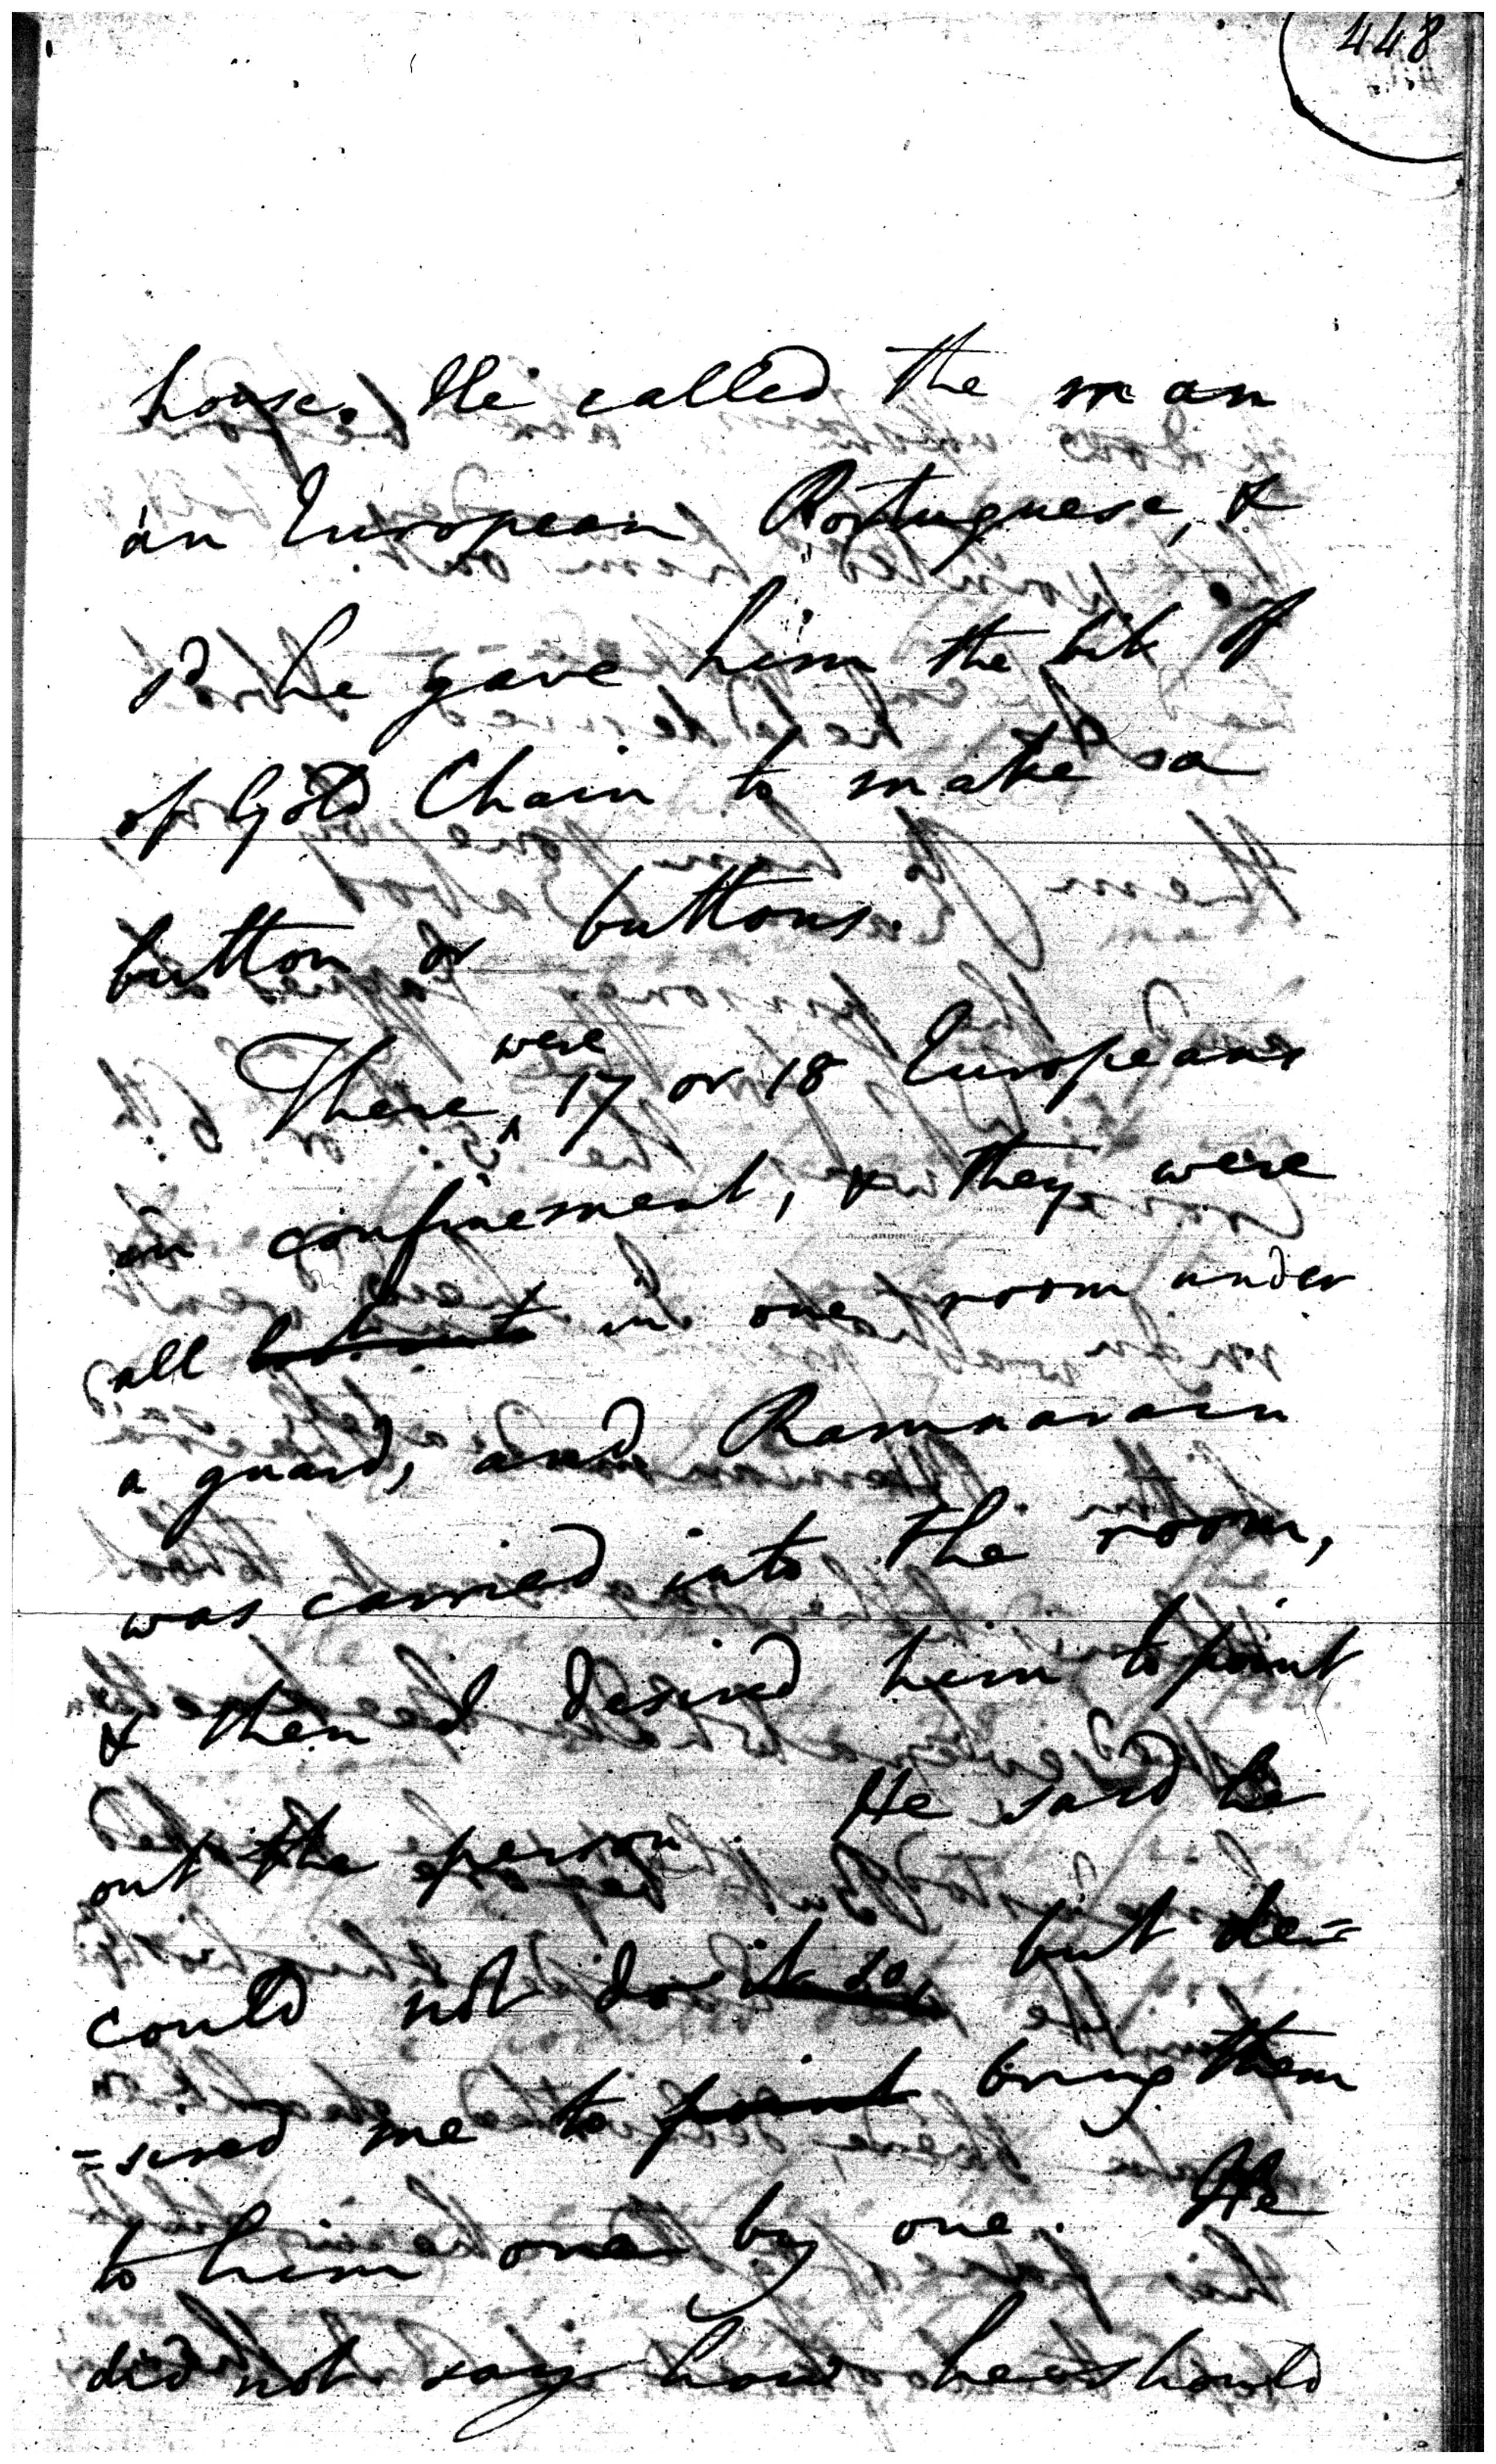 448
house. He called the man
an European Portuguese, &
sd he gave him the bit of
of Gold Chain to make a
button or buttons.
were
There 17 or 18 Europeans
in confinement, & they were
all in one room under
a guard, and Ramnarain
was carried into the room,
& then I desired him to point
out the person. He said he
could not do it so, but de=
=sired me to point bring them
to him one by one. He
did not say how he should